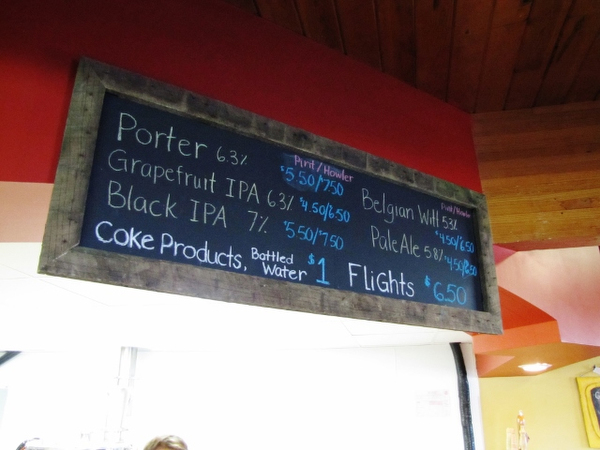 Pint/Howler
Porter 6.3% $5.50/7.50
Grapefruit IPA 6.3% $4.50/6.50
Black IPA 7% $5.50/7.50
Pint/Howler
Belgian Wit 5.3% $4.50/6.50
Pale Ale 5.8% $4.50/6.50
Coke Products, Bottled Water $1 Flights $6.50